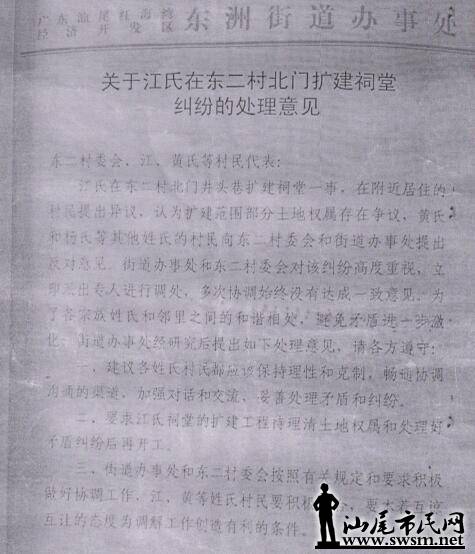 广东汕尾红海湾
经济开发区 东洲街道办事处
关于江氏在东二村北门扩建祠堂
纠纷的处理意见
东二村委会、江、黄氏等村民代表:
江氏在东二村北门井头巷扩建祠堂一事,在附近居住的
村民提出异议,认为扩建范围部分土地权属存在争议,黄氏
和杨氏等其他姓氏的村民向东二村委会和街道办事处提出
反对意见。街道办事处和东二村委会对该纠纷高度重视,立
即派出专人进行调处,多次协调始终没有达成一致意见。为
了各宗族姓氏和邻里之间的和谐相处,避免矛盾进一步激
化,街道办事处经研究后提出如下处理意见,请各方遵守:
一、建议各姓氏村民都应该保持理性和克制,畅通协调
沟通的渠道,加强对话和交流,妥善处理矛盾和纠纷。
二、要求江氏祠堂的扩建工程待理清土地权属和处理好
矛盾纠纷后再开工。
三、街道办事处和东二村委会按照有关规定和要求积极
做好协调工作,江、黄等姓氏村民要积极 要本着互谅
互让的态度为调解工作创造有利的条件。
汕尾市民网
www.swsm.net